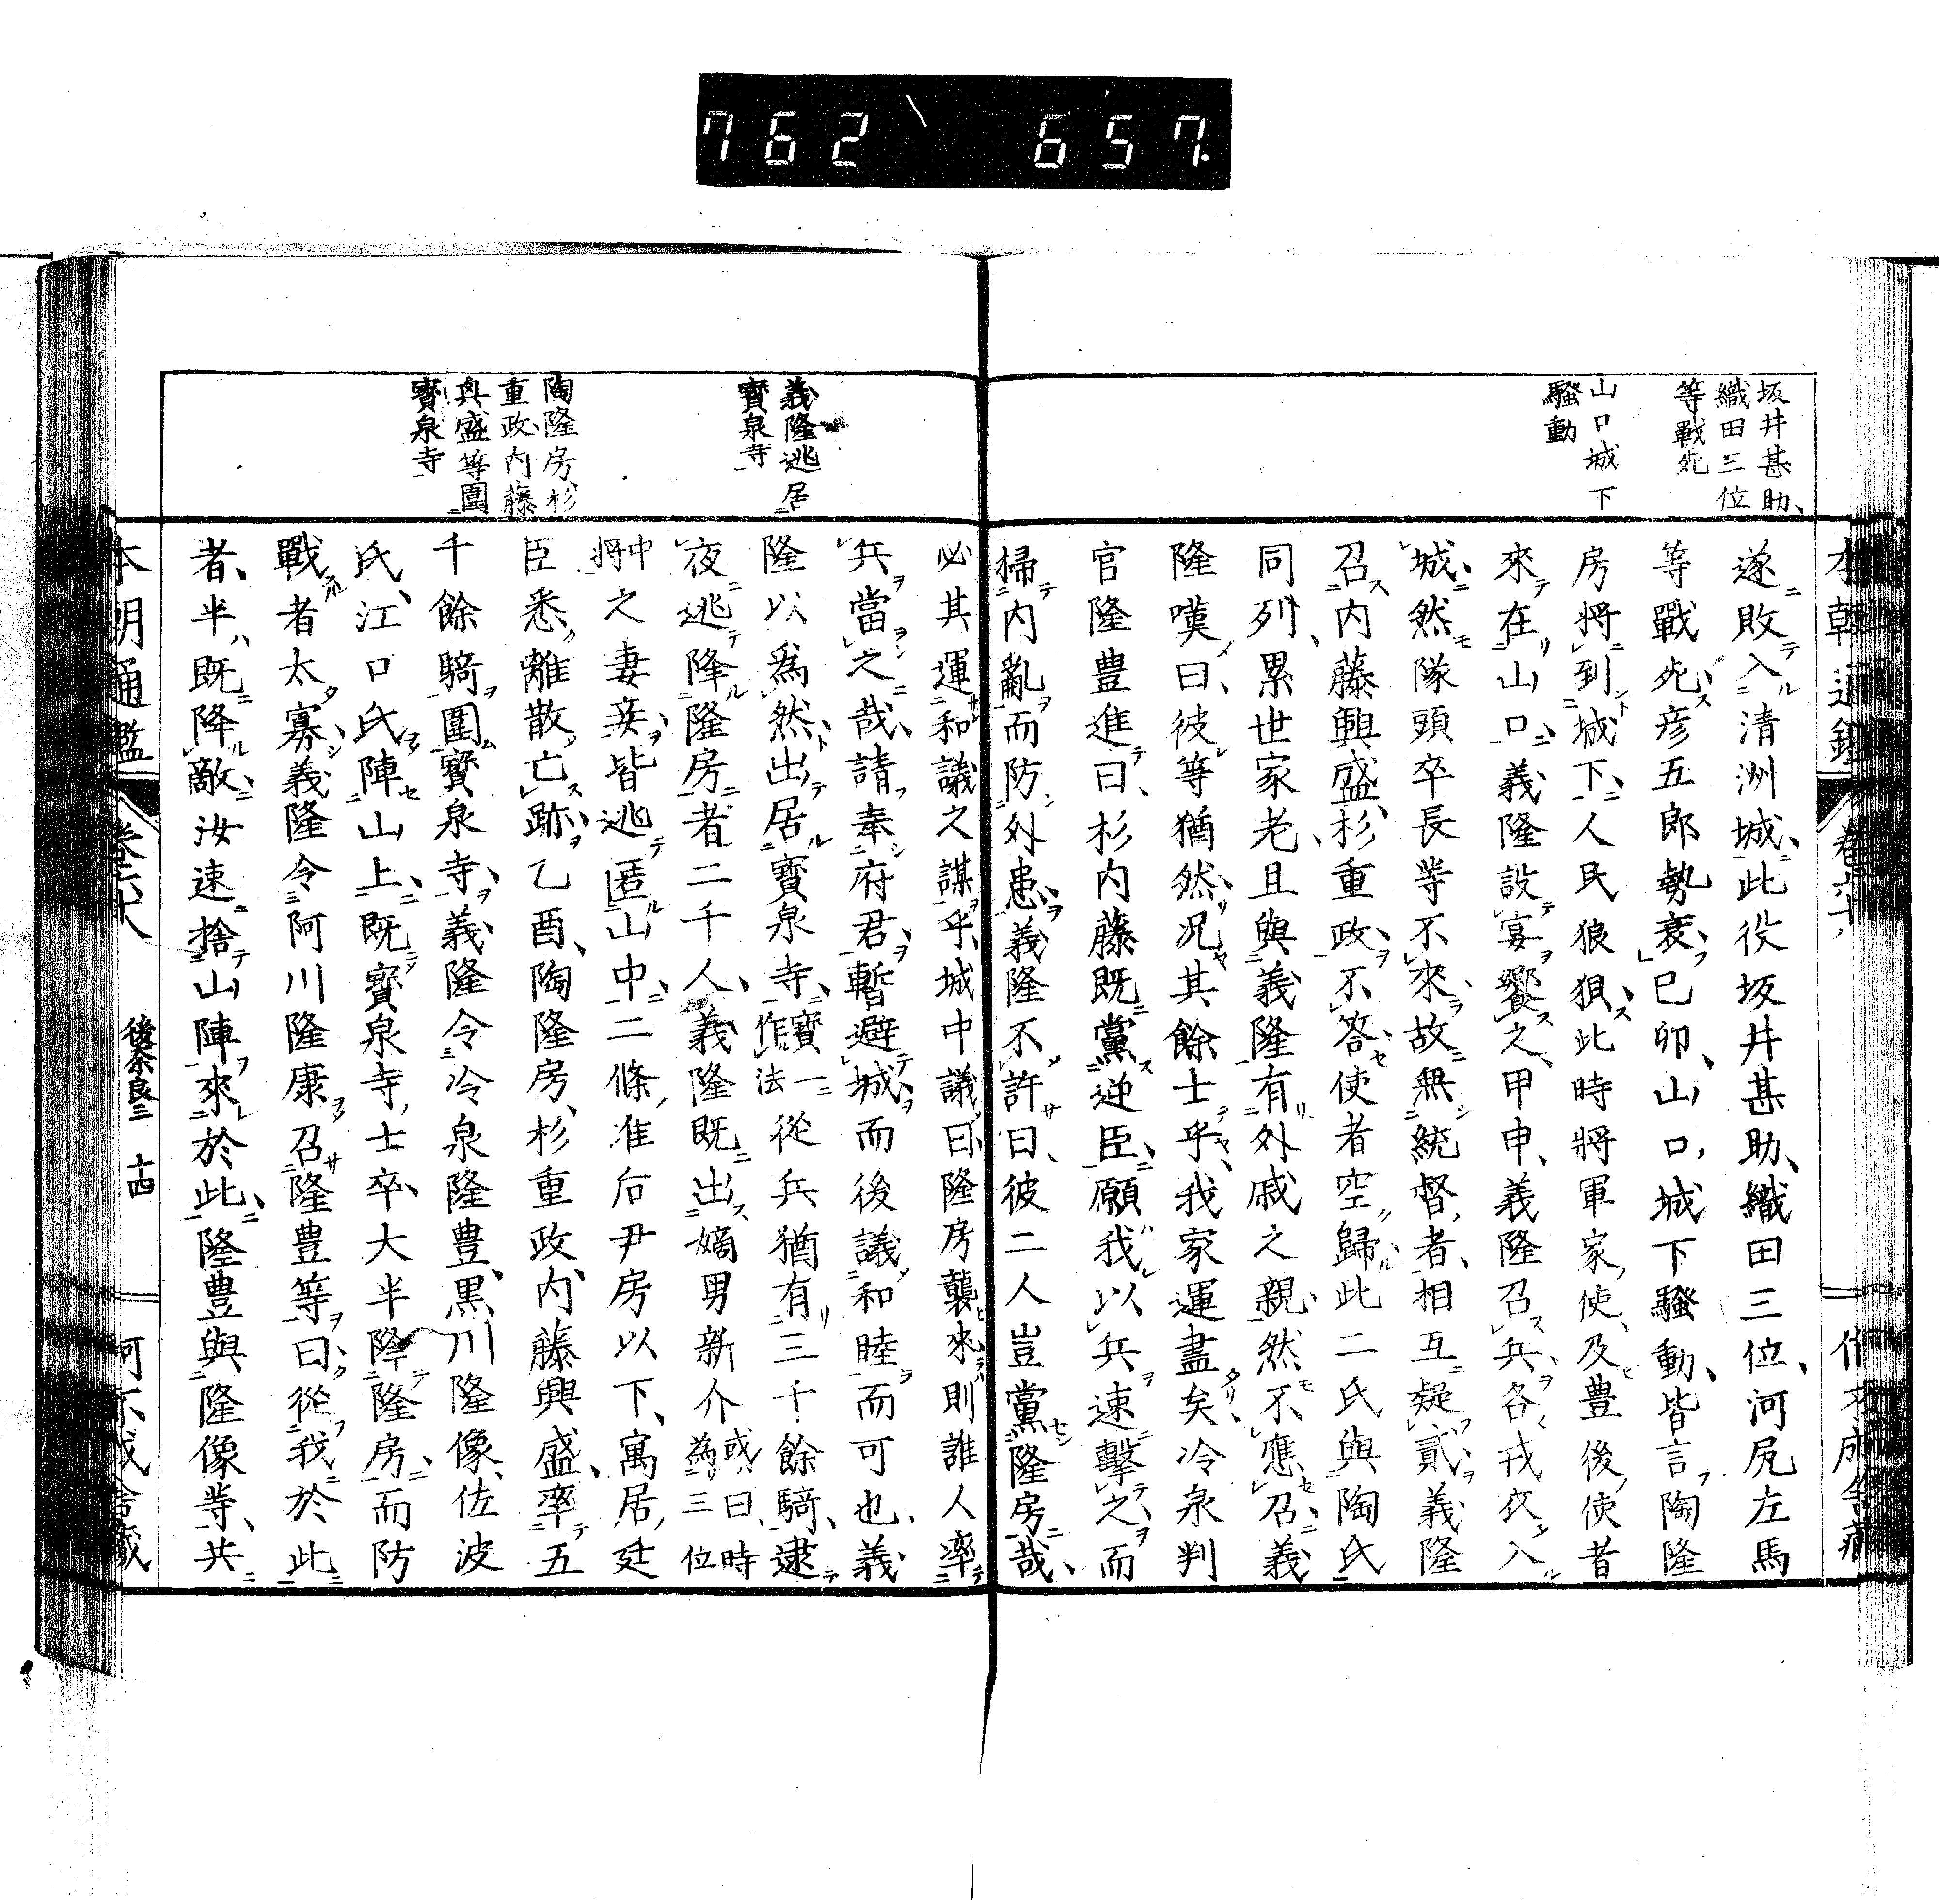 762 657.
坂井甚助、
織田三位
等戰死
山口城下
騷動
遂敗入清洲城、此役坂井甚助、織田三位、河尻左馬
等戰死、彦五郎勢衰、己卯、山口城下騷動、皆言陶隆
房將到城下、人民狼狽、此時將軍家使、及豊後使者
來在山口、義隆設宴饗之、甲申、義隆召兵、各戎衣入
城、然隊頭卒長等不來、故無統督者、相互疑貳、義隆
召内藤興盛、杉重政、不答、使者空歸、此二氏與陶氏
同列、累世家老、且與義隆有外戚之親、然不應召、義
隆嘆曰、彼等猶然、况其餘士乎、我家運盡矣、冷泉判
官隆豊進曰、杉内藤既黨逆臣、願我以兵速擊之、而
掃内亂而防外患、義隆不許曰、彼二人豈黨隆房哉、
義隆逃居
寶泉寺
陶隆房、杉
重政、内藤
興盛等圍
寶泉寺
必其運和議之謀乎、城中議曰、隆房襲來、則誰人率
兵當之哉、請奉府君、暫避城而後議和睦而可也、義
隆以爲然、出居寶泉寺、寶一作法從兵猶有三千餘騎、逮
夜逃降隆房者二千人、義隆既出、嫡男新介或曰、時為三位
中將之妻妾、皆逃匿山中、二條准后尹房以下、寓居廷
臣悉離散亡跡、乙酉、陶隆房、杉重政、内藤興盛、率五
千餘騎圍寶泉寺、義隆令冷泉隆豊、黒川隆像、佐波
氏、江口氏陣山上、既寶泉寺士卒、大半降隆房、而防
戰者太寡、義隆令阿川隆康召隆豊等曰、從我於此
者、半既降敵、汝速捨山陣來於此、隆豊與隆像等、共
本朝通鑑
後奈良三
十四